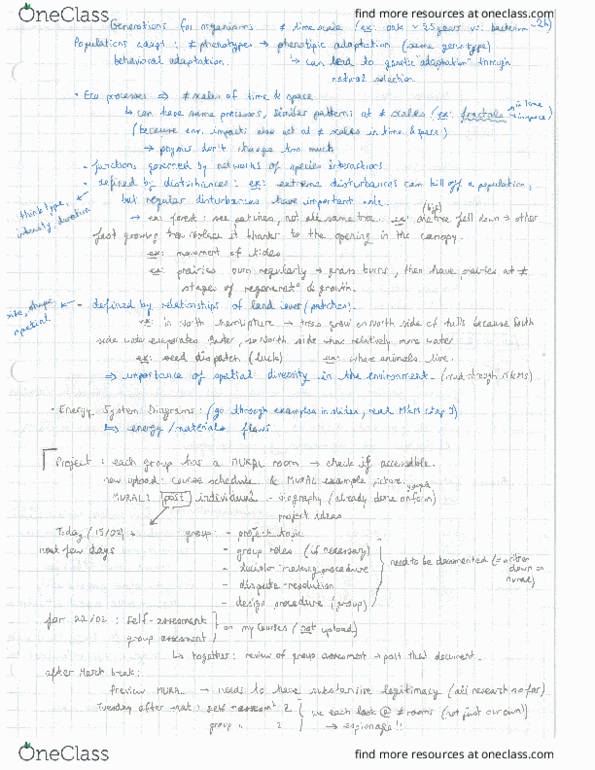 OneClass
find more resources at oneclass.com
Generations for organisms ≠ time scale (ex: oak ~ 25 years vs. bacterium ~2h)
Populations adapt: ≠ phenotypes → phenotypic adaptation (same genotype)
behavioral adaptation. ↳ can lead to genetic "adaptation" through
natural selection.
• Eco processes ⇒ ≠ scales of time & space
↳ can have same processes, similar patterns at ≠ scales (ex: fractals → in time → in space)
(because env. impacts also act at ≠ scales in time & space)
→ don't change too much
- functions governed by networks of species interactions
- defined by disturbances: ex: extreme disturbances can kill off a population,
but regular disturbances have important role.
think type, intensity, duration
→ ex: forest: see patches, not all same tree. ex: one (big) tree fell down → other
fast growing tree replace it thanks to the opening in the canopy.
ex: movement of tides
ex: prairies burn regularly → grass burns, then have patches at ≠
stages of regenerat° & growth.
size, shape, spatial
- defined by relationships of land cover (patches).
ex: in North hemisphere → trees grow on North side of hills because South
side water evaporates faster, so North side has relatively more water
ex: seed dispatch (luck) ex: where animals live.
⇒ importance of spatial diversity in the environment. (read through M&MS)
• Energy System Diagrams: (go through examples in slides, read M&M step 1)
↳ energy/materials flows
Project: each group has a MURAL room → check if accessible.
new upload: course schedule & MURAL example picture.
MURAL: post individual - biography (already done on form)
project ideas
Today (15/02) +
next few days
group: - project topic
- group roles (if necessary)
- decision-making procedure
- dispute-resolution
- design procedure (group)
need to be documented (= written down on mural)
for 22/02: self-assessment
group assessment
on myCourses (not upload)
↳ together: review of group assessment → post that document.
after March break:
Preview MURAL → needs to have substantive legitimacy (all research so far)
Tuesday after that: self-assessm^t 2
group " 2
we each look @ ≠ rooms (not just our own)
→ espionage!!
OneClass
find more resources at oneclass.com